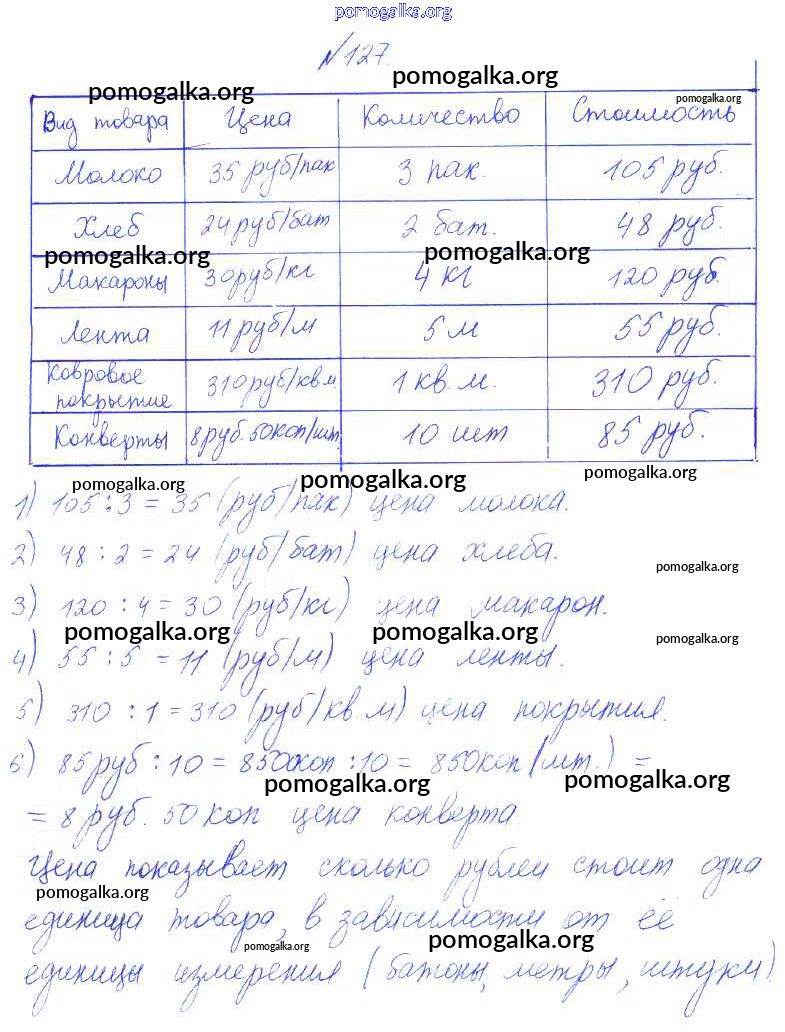 pomogalka.org
№127.
pomogalka.org pomogalka.org pomogalka.org
Вид товара Цена Количество Стоимость
Молоко 35 руб/пак 3 пак. 105 руб.
Хлеб 24 руб/бат 2 бат. 48 руб.
pomogalka.org pomogalka.org
Макароны 30 руб/кг 4 кг 120 руб.
Лента 11 руб/м 5 м 55 руб.
Ковровое покрытие 310 руб/кв.м 1 кв. м. 310 руб.
Конверты 8 руб. 50 коп/шт. 10 шт 85 руб.
pomogalka.org pomogalka.org pomogalka.org
1) 105 : 3 = 35 (руб/пак) цена молока.
2) 48 : 2 = 24 (руб/бат) цена хлеба.
pomogalka.org
3) 120 : 4 = 30 (руб/кг) цена макарон.
pomogalka.org pomogalka.org pomogalka.org
4) 55 : 5 = 11 (руб/м) цена ленты.
5) 310 : 1 = 310 (руб/кв.м) цена покрытия.
6) 85 руб : 10 = 8500 коп : 10 = 850 коп (шт.) =
pomogalka.org pomogalka.org
= 8 руб. 50 коп цена конверта.
Цена показывает сколько рублей стоит одна
pomogalka.org
единица товара, в зависимости от её
pomogalka.org pomogalka.org
единицы измерения (батоны, метры, штуки).